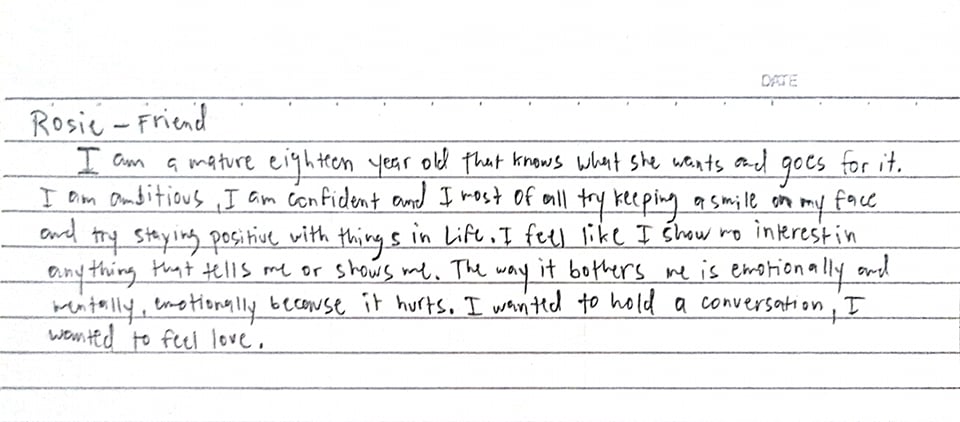 DATE
Rosie - Friend
I am a mature eighteen year old that knows what she wants and goes for it.
I am ambitious, I am confident and I most of all try keeping a smile on my face
and try staying positive with things in life. I feel like I show no interest in
anything that tells me or shows me. The way it bothers me is emotionally and
mentally, emotionally because it hurts. I wanted to hold a conversation, I
wanted to feel love.